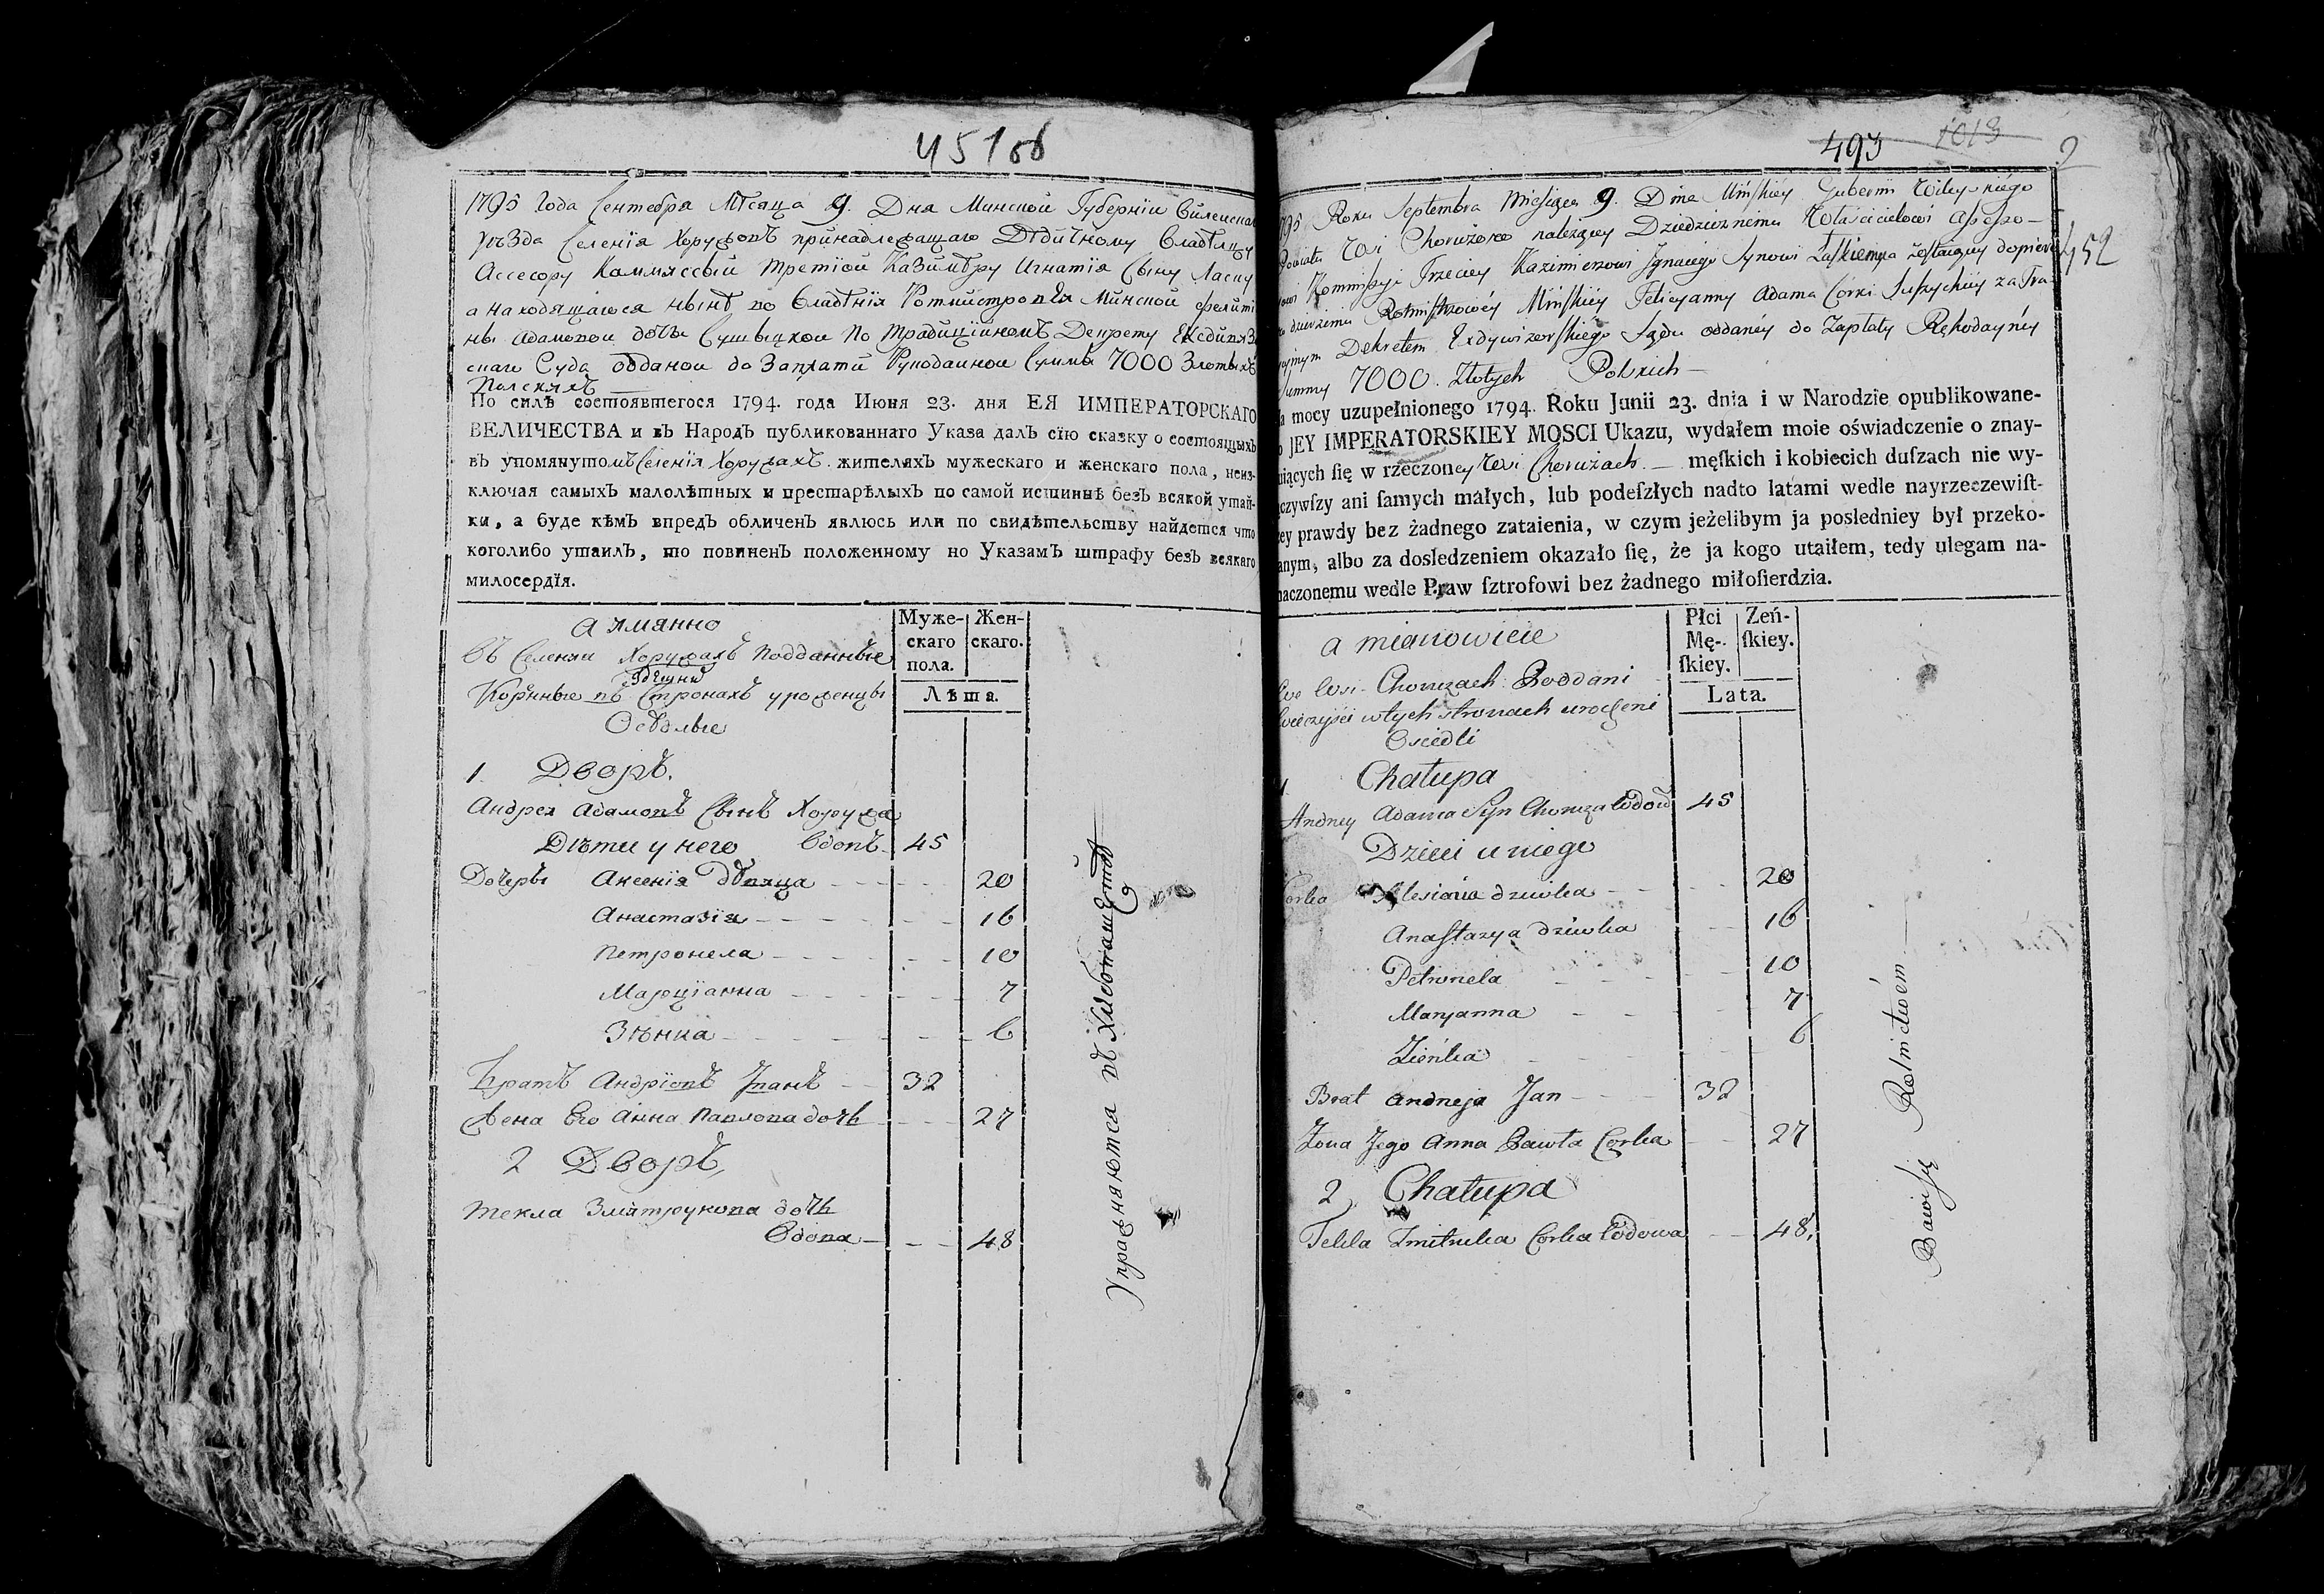 451об
1795 Года Сентебра Мѣсяца 9. Дня Минской Губернїи Вилейскаго
уѣзда Селенїя Хоружовъ принадлежащаго Дѣдичному Владѣлцу
Ассесору Каммяссыи Третїой Казимѣру Игнатїя Сыну Ласку
а находящагося нынѣ во Владѣнїи Ротмистровей Минской Фелиті
ны Адамовой дочы Сушыцкои По Традицїйномъ Декрету Ексдивиз
скаго Суда отданои до Заплати Рукодаинои Суммы 7000 Злотыхъ
Полскихъ
По силѣ состоявшегося 1794. года Июня 23. дня ЕЯ ИМПЕРАТОРСКАГО
ВЕЛИЧЕСТВА и въ Народъ публикованнаго Указа далъ сїю сказку о состоящыхъ
въ упомянутомъ Селенїи Хоружахъ жителяхъ мужескаго и женскаго пола, неиз-
ключая самыхъ малолѣтных и престарѣлыхъ по самой истиннѣ безъ всякой утай-
ки, а буде кѣмъ впредъ обличенъ явлюсь или по свидѣтельству найдется что
коголибо утаилъ, то повиненъ положенному по Указамъ штрафу безъ всякаго
милосердїя.
а имянно
Въ Селении Хоружахъ Подданные
Здешни
Корѣнные въ Стронахъ уроженцы
Осѣдлые
Муже-
скаго
пола.
Жен-
скаго.
Лѣта.
1. Дворъ.
Андрея Адамовъ Сынъ Хоружа
Дѣти у него Вдовъ 45
Дочеры Аксенїя Дѣвица 20
Анастазїя 16
Петронела 10
Марцїанна 7
Зѣнка 6
Братъ Андрїовъ Иванъ 32
Жена Его Анна Павлова дочь 27
2 Дворъ,
Текла Змитрукова дочь
Вдова 48
Упражняются въ Хлебопашестве
493 1013 2
452
1795 Roku Septembra Miesiąca 9. Dnia Mińskiey Gubernii Wileyskiego
Powiatu Wsi Chorużow należącey Dziedzicznemu Właścicielowi Assesso-
rowi Kommissyi Trzeciey Kazimierzowi Jgnacego Synowi Łaskiemu zostaiącey dopiero
w dzierżeniu Rotmistrzowéy Mińskiéy Felicyanny Adama Corki Suszyckiéy za Tra
dycyjnym Dekretem Exdywizorskiégo Sądu oddanéy do Zapłaty Rękodaynéy
Summy 7000. Złotych Polskich
Na mocy uzupełnionego 1794. Roku Junii 23. dnia i w Narodzie opublikowane-
go JEY IMPERATORSKIEY MOSCI Ukazu, wydałem moie oświadczenie o znay-
duiących ſię w rzeczoney Wsi Chorużach męſkich i kobiecich duſzach nie wy-
łączywſzy ani ſamych małych, lub podeſzłych nadto latami wedle nayrzeczewiſt-
szey prawdy bez żadnego zataienia, w czym jeżelibym ja posledniey był przeko-
nanym, albo za dosledzeniem okazało ſię, że ja kogo utaiłem, tedy ulegam na-
znaczonemu wedle Praw ſztrofowi bez żadnego miłoſierdzia.
a mianowicie
We Wsi Chorużach Poddani
Wieczyści w tych stronach urodzeni
Osiedli
Płci
Mę-
ſkiey.
Zeń-
ſkiey.
Lata.
1. Chałupa
Andrzey Adama Syn Choruża Wdow 45
Dzieci u niego
Corka Alesiana dziwka 20
Anastazya dziwka 16
Petronela 10
Maryanna 7
Zieńka 6
Brat Andrzeja Jan 32
Zona Jego Anna Pawła Corka 27
2 Chałupa
Tekla Zmitruka Corka Wdowa 48.
Bawi się Rolnictwem